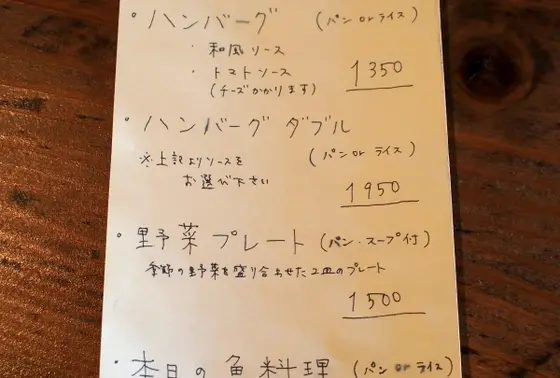 ・ハンバーグ (パン or ライス)
・和風ソース
・トマトソース
(チーズかかります) 1350
・ハンバーグ ダブル
※上記よりソースを (パン or ライス)
お選び下さい
1950
・野菜プレート (パン・スープ付)
季節の野菜を盛り合わせた2皿のプレート
1500
・本日の魚料理 (パン or ライス)